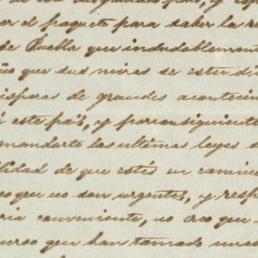 por el paquete para saber la re
de Puebla que indudablemente
que sus miras se estendi
vísperas de grandes acontecim
este país, y por consiguiente
mandarte las ultimas leyes
lidad de que estés en camino
que no son urgentes, y resp
ria conveniente, no creo que
curso que han tomado unas